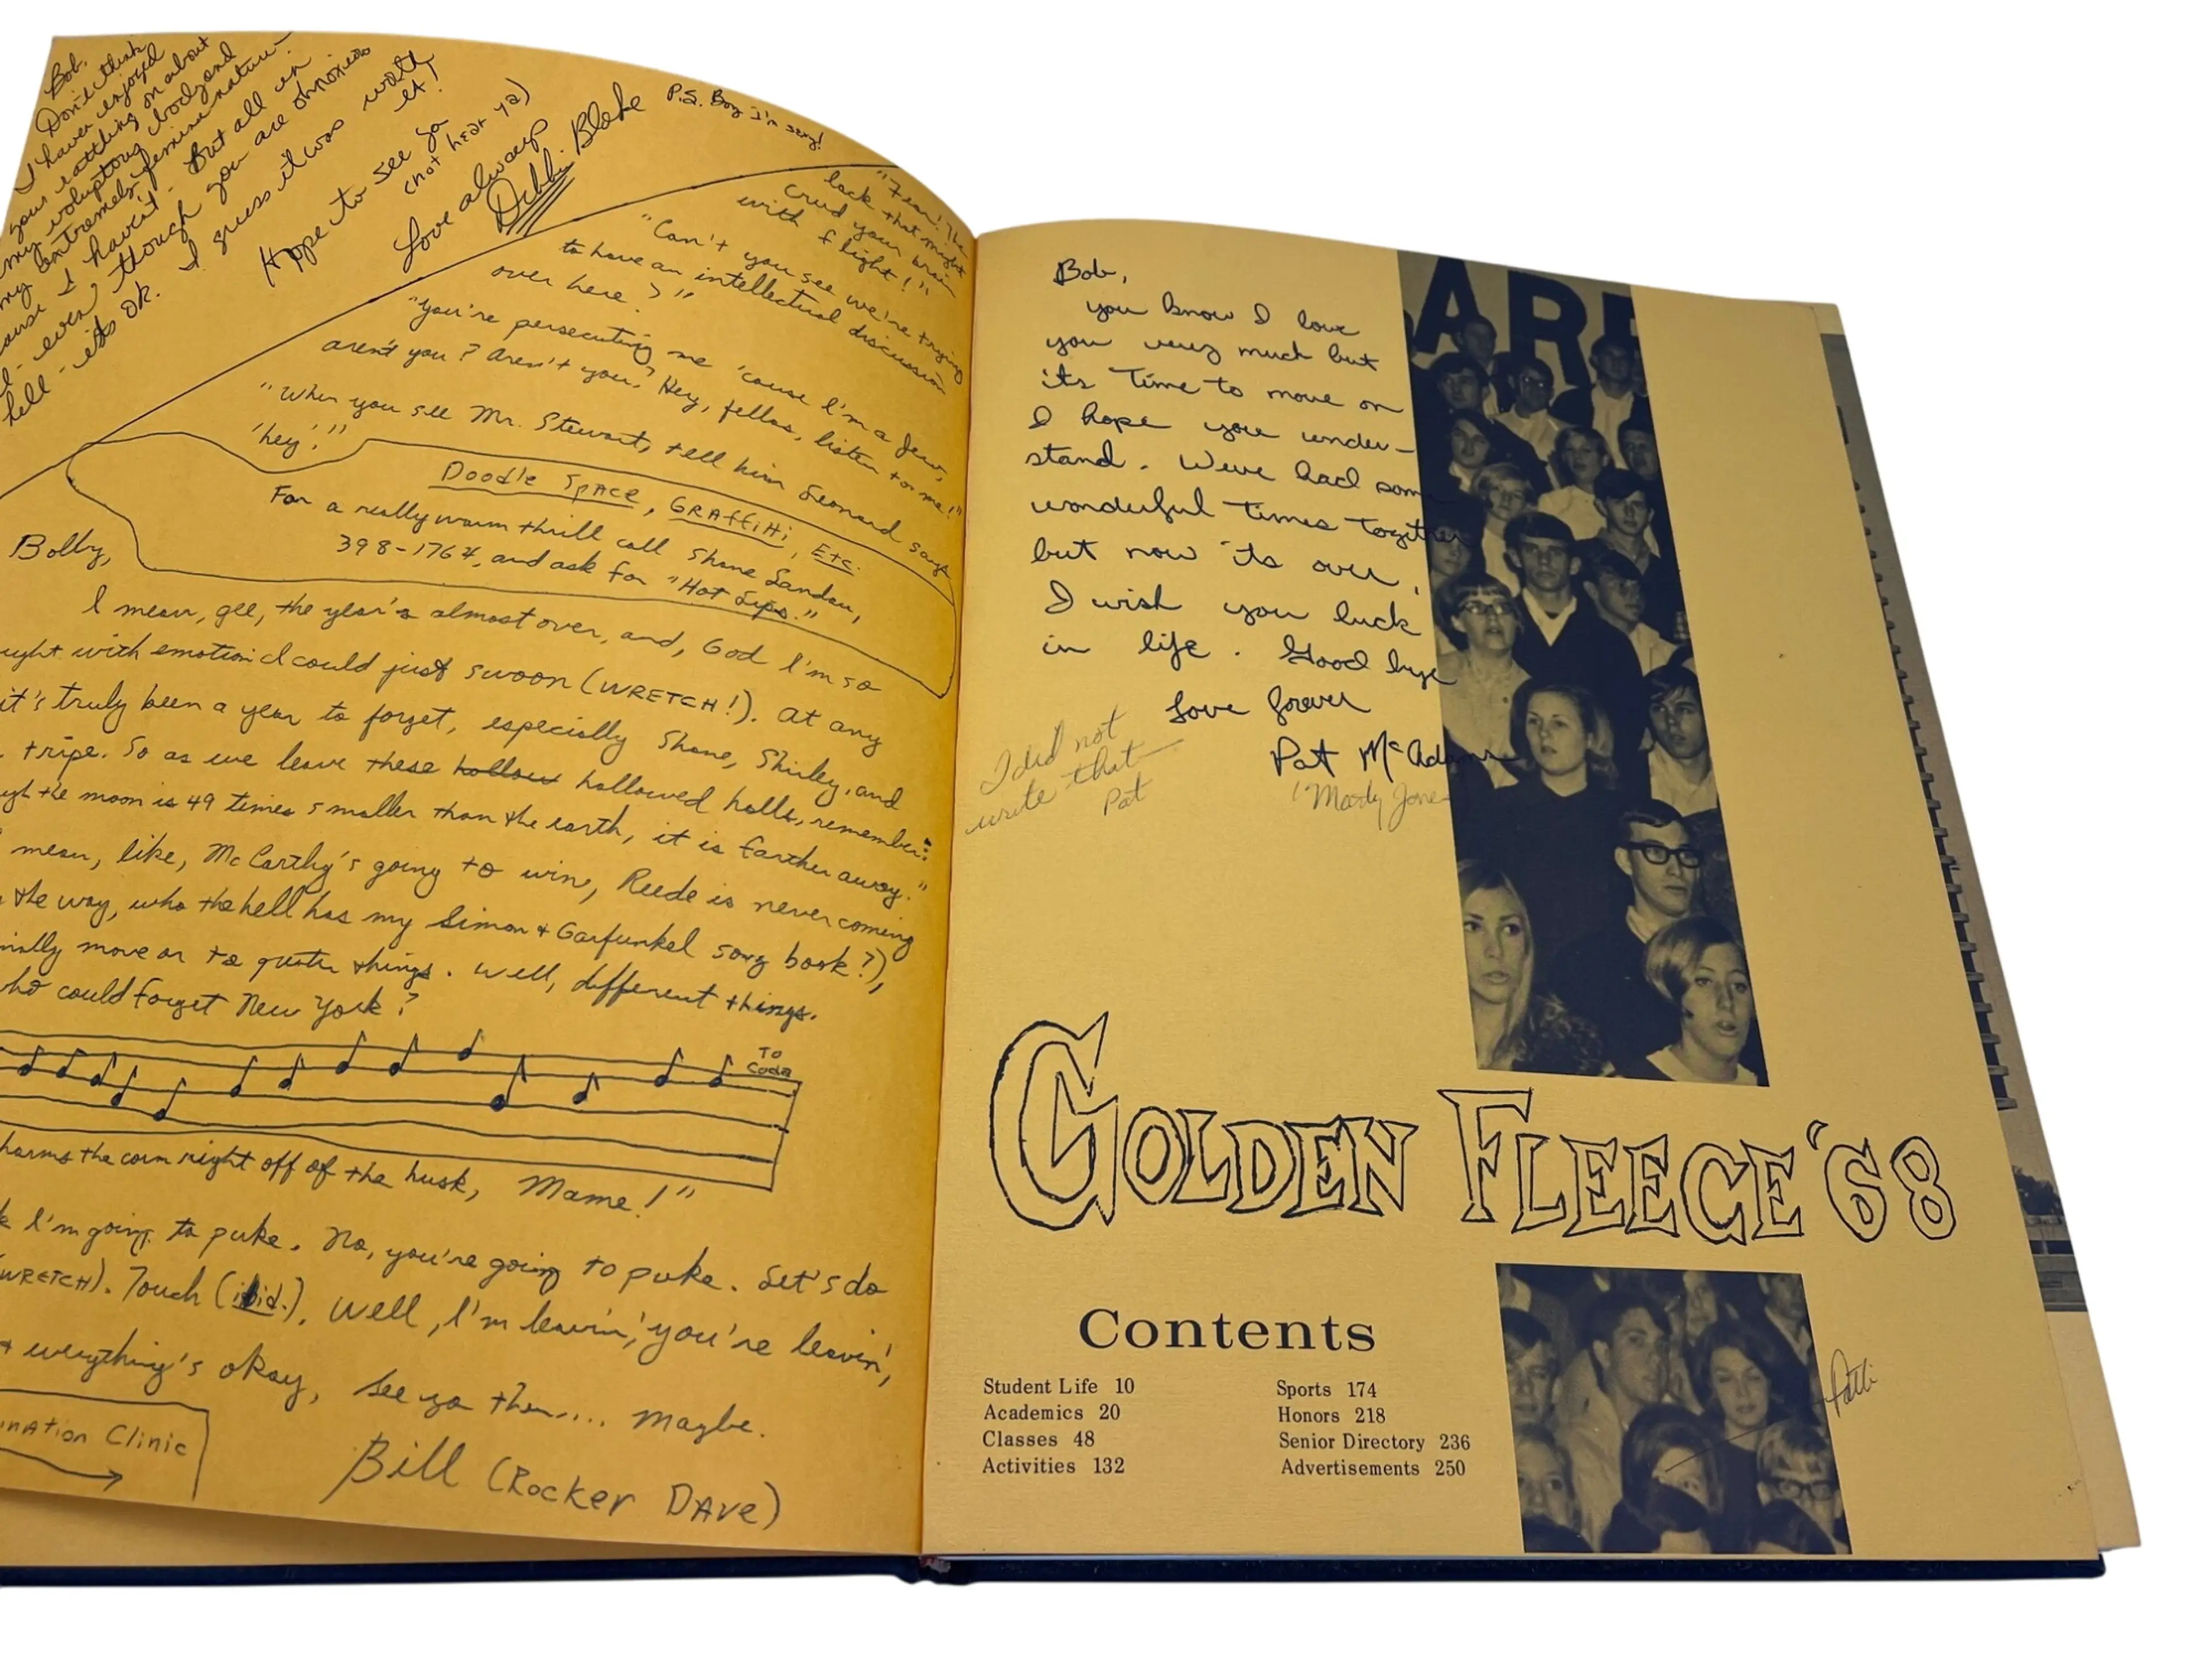 Bob,
Don't think
I haven enjoyed
your rattling on about
my voluptous body and
my extremely feminine nature -
cause I haven't. But all in
even though you are obnoxious
hell - its OK. I guess it was worth
it!
Hope to see ya
(not hear ya)
Love always
Debbi Blake
P.S. Boy I'm sexy!
"Fear! The
lack that might
crud your brain
with flight!"
"Can't you see we're trying
to have an intellectual discussion
over here?"
"You're persecuting me 'cause I'm a Jew,
aren't you? Aren't you? Hey, fellas, listen to me!"
"When you see Mr. Stewart, tell him Leonard says
'hey'."
Doodle Space, Graffiti, Etc.
For a really warm thrill call Shane Landau,
398-1764, and ask for "Hot Lips."
Bobby,
I mean, gee, the year's almost over, and, God I'm so
ught with emotion I could just swoon (WRETCH!). At any
it's truly been a year to forget, especially Shane, Shirley, and
tripe. So as we leave these hollow hallowed halls, remember:
ugh the moon is 49 times smaller than the earth, it is farther away."
mean, like, McCarthy's going to win, Reede is never coming
the way, who the hell has my Simon & Garfunkel song book?),
nally move on to quieter things. Well, different things.
ho could forget New York?
To
Coda
harms the corn right off of the husk, Mame!"
k I'm going to puke. No, you're going to puke. Let's do
(WRETCH). Touch (ibid.). Well, I'm leavin', you're leavin',
everything's okay, see ya then.... maybe.
ination Clinic
Bill (Rocker Dave)
Bob,
you know I love
you very much but
its Time to move on
I hope you under-
stand. Weve had some
wonderful Times Together
but now its over,
I wish you luck
in life. Good bye
Love forever
Pat McAdams
I did not
write that
Pat
"Mary Jane
ARE
GOLDEN FLEECE '68
Contents
Student Life 10
Academics 20
Classes 48
Activities 132
Sports 174
Honors 218
Senior Directory 236
Advertisements 250
Patti